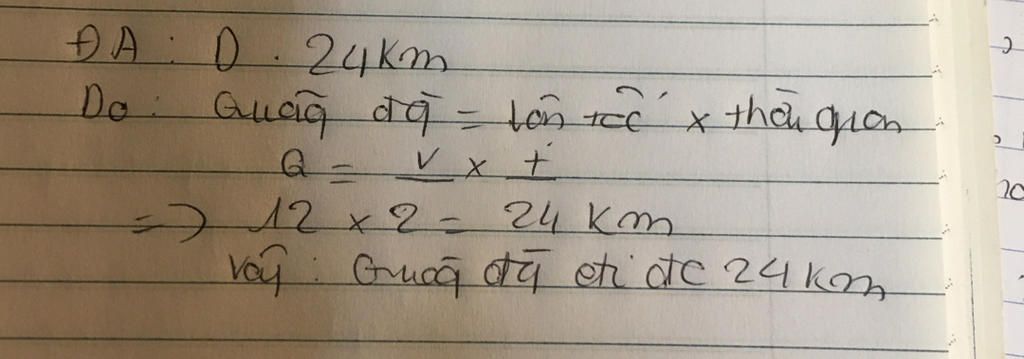 ĐA : D . 24km
Do : Quāg đg̃ = vận tốc x thời gian
Q = v x t
=> 12 x 2 = 24 km
Vậy : Quāg đg̃ đi đc 24 km